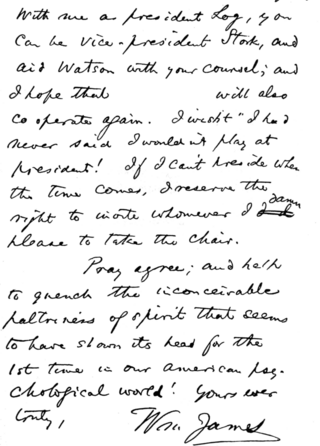 With me as president Log, you
can be Vice-president Stork, and
aid Watson with your counsel; and
I hope that will also
cooperate again. I wisht "I had
never said I wouldn't play at
president! If I can't preside when
the time comes, I reserve the
right to invite whomever I damn
please to take the chair.
Pray agree; and help
to quench the inconceivable
paltriness of spirit that seems
to have shown its head for the
1st time in our american psy-
chological world! Yours ever
truly,
Wm James